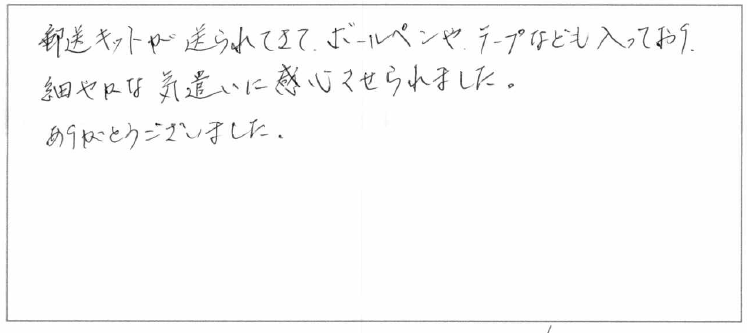 郵送キットが送られてきて、ボールペンや、テープなども入っており、
細やかな気遣いに感心させられました。
ありがとうございました。